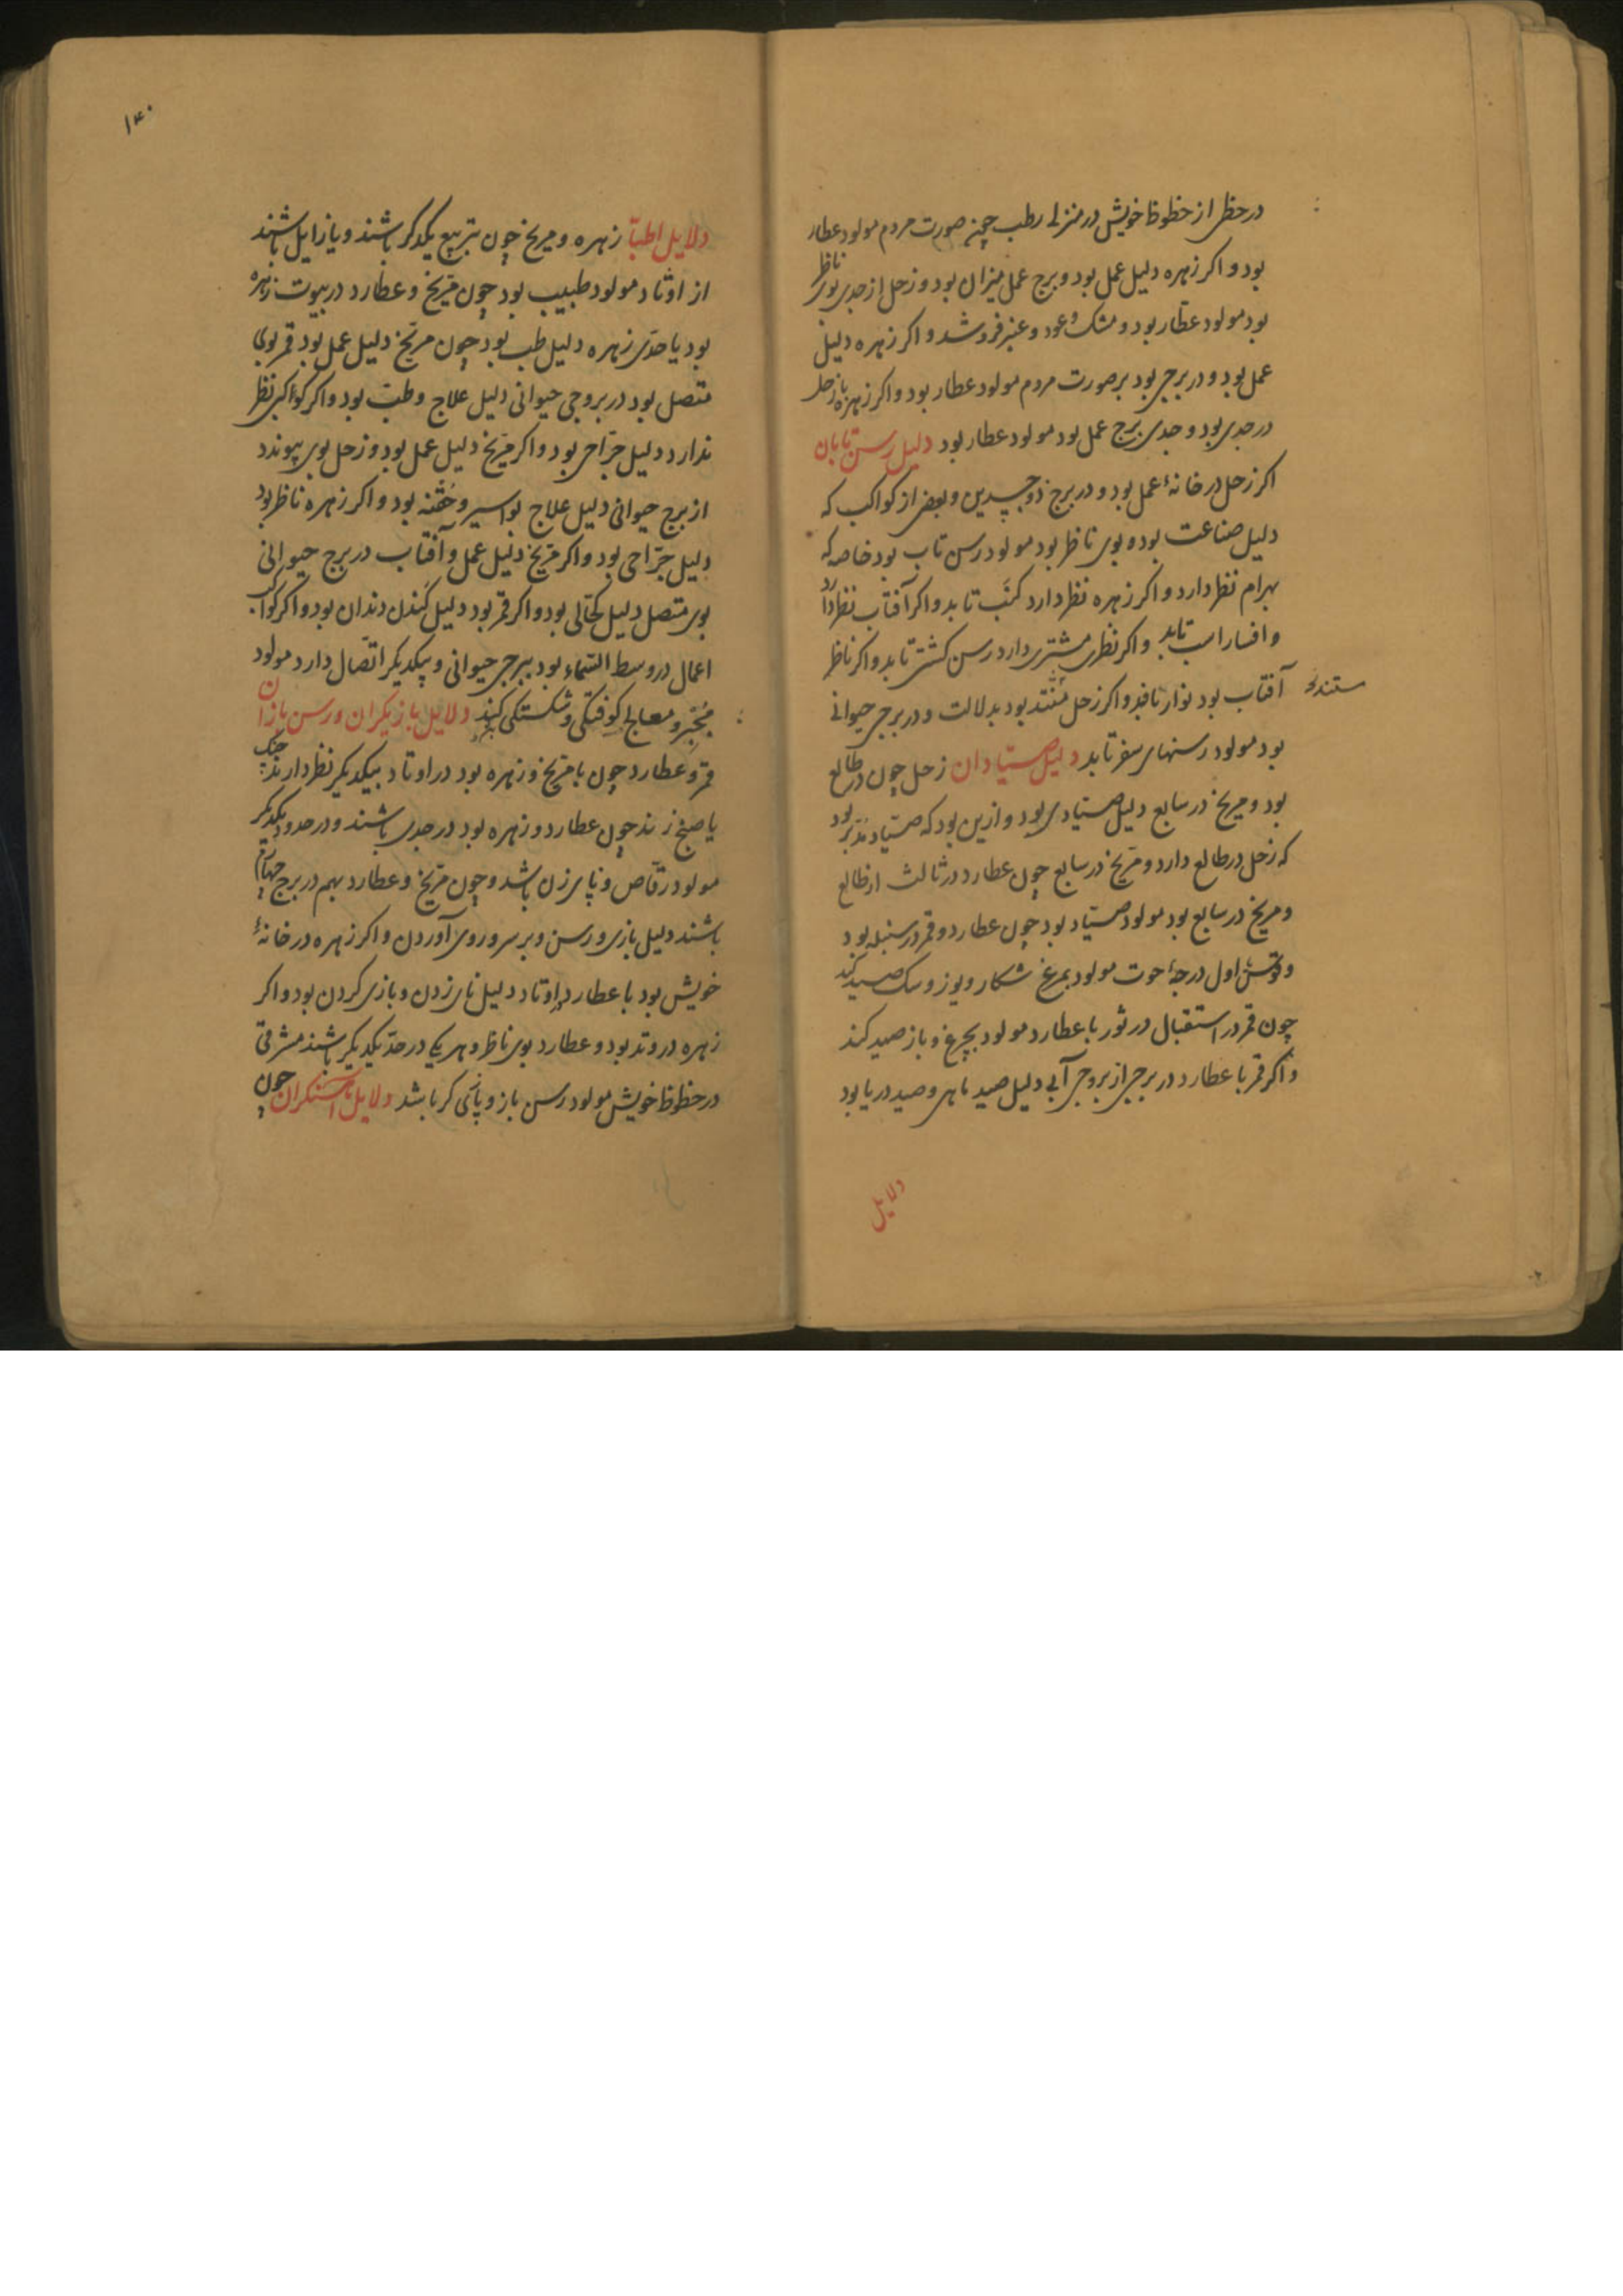 در حظی از حظوظ خویش در منزلے رطب چون صورت مردم مولود عطار
بود و اکر زهره دلیل عمل بود و برج عمل میزان بود و زحل از جدی بوی ناظر
بود مولود عطّار بود و مشک و عود و عنبر فروشد و اکر زهره دلیل
عمل بود و در برجی بود بر صورت مردم مولود عطار بود و اکر زهره با زحل
در جدی بود و جدی برج عمل بود مولود عطار بود دلیل رسن تابان
اکر زحل در خانهٔ عمل بود و در برج ذو جسدین و بعضی از کواکب که
دلیل صناعت بوده بوی ناظر بود مولود رسن تاب بود خاصه که
بهرام نظر دارد و اکر زهره نظر دارد کنَب تابد و اکر آفتاب نظر دارد
و افسار اسب تابد و اکر نظری مشتری دارد رسن کشتی تابد و اکر ناظر
آفتاب بود نوار بافد و اکر زحل بود بدلالت و در برجی حیوانی
بود مولود رسنهای سفر تابد دلیل صیّادان زحل چون در طالع
بود و مریخ در سابع دلیل صیّادی بود و ازین بود که صیّاد مُدَبّر بود
که زحل در طالع دارد و مرّیخ در سابع چون عطارد در ثالث از طالع
و مریخ در سابع بود مولود صیّاد بود چون عطارد و قمر در سنبله بود
و اول درجهٔ حوت مولود بمرغ شکار و یوز و سک صید کند
چون قمر در استقبال در ثور با عطارد مولود بچرغ و باز صید کند
و اکر قمر با عطارد در برجی از بروجی آبی دلیل صید ماهی و صید دریا بود
دلایل
۱۴۰
دلایل اطبّا زهره و مریخ چون بتربیع یکدکر باشند و یا زایل باشند
از اوتاد مولود طبیب بود چون مرّیخ و عطارد در بیوت زهره
بود یا حدّی زهره دلیل طب بود چون مرّیخ دلیل عمل بود قمر بوی
متصل بود در بروجی حیوانی دلیل علاج و طبّ بود و اکر کواکبی نظر
ندارد دلیل جرّاحی بود و اکر مرّیخ دلیل عمل بود و زحل بوی پیوندد
از برج حیوانی دلیل علاج بواسیر و حُقنه بود و اکر زهره ناظر بود
دلیل جرّاحی بود و اکر مرّیخ دلیل عمل و آفتاب در برج حیوانی
بوی متصل دلیل کحّالی بود و اکر قمر بود دلیل کَندن دندان بود و اکر کواکب
اعمال در وسط السّماء بود ببرجی حیوانی و بیکدیکر اتّصال دارد مولود
مُجبّر و معالج کوفتکی و شکستکی کند دلایل بازیکران و رسن بازان
قمر و عطارد چون با مرّیخ و زهره بود در اوتاد بیکدیکر نظر دارند چنک
یا صنج زند چون عطارد و زهره بود در جدی باشند و در حدود یکدیکر
مولود رقّاص و پای زن باشد و چون مرّیخ و عطارد بهم در برج
باشند دلیل بازی و رسن و بر سر و روی آوردن و اکر زهره در خانهٔ
خویش بود با عطارد در اوتاد دلیل نای زدن و بازی کردن بود و اکر
زهره در وتد بود و عطارد بوی ناظر و هر یکی در حدّ یکدیکر باشند مشرقی
در حظوظ خویش مولود رسن باز و پائی کر باشد دلایل چون